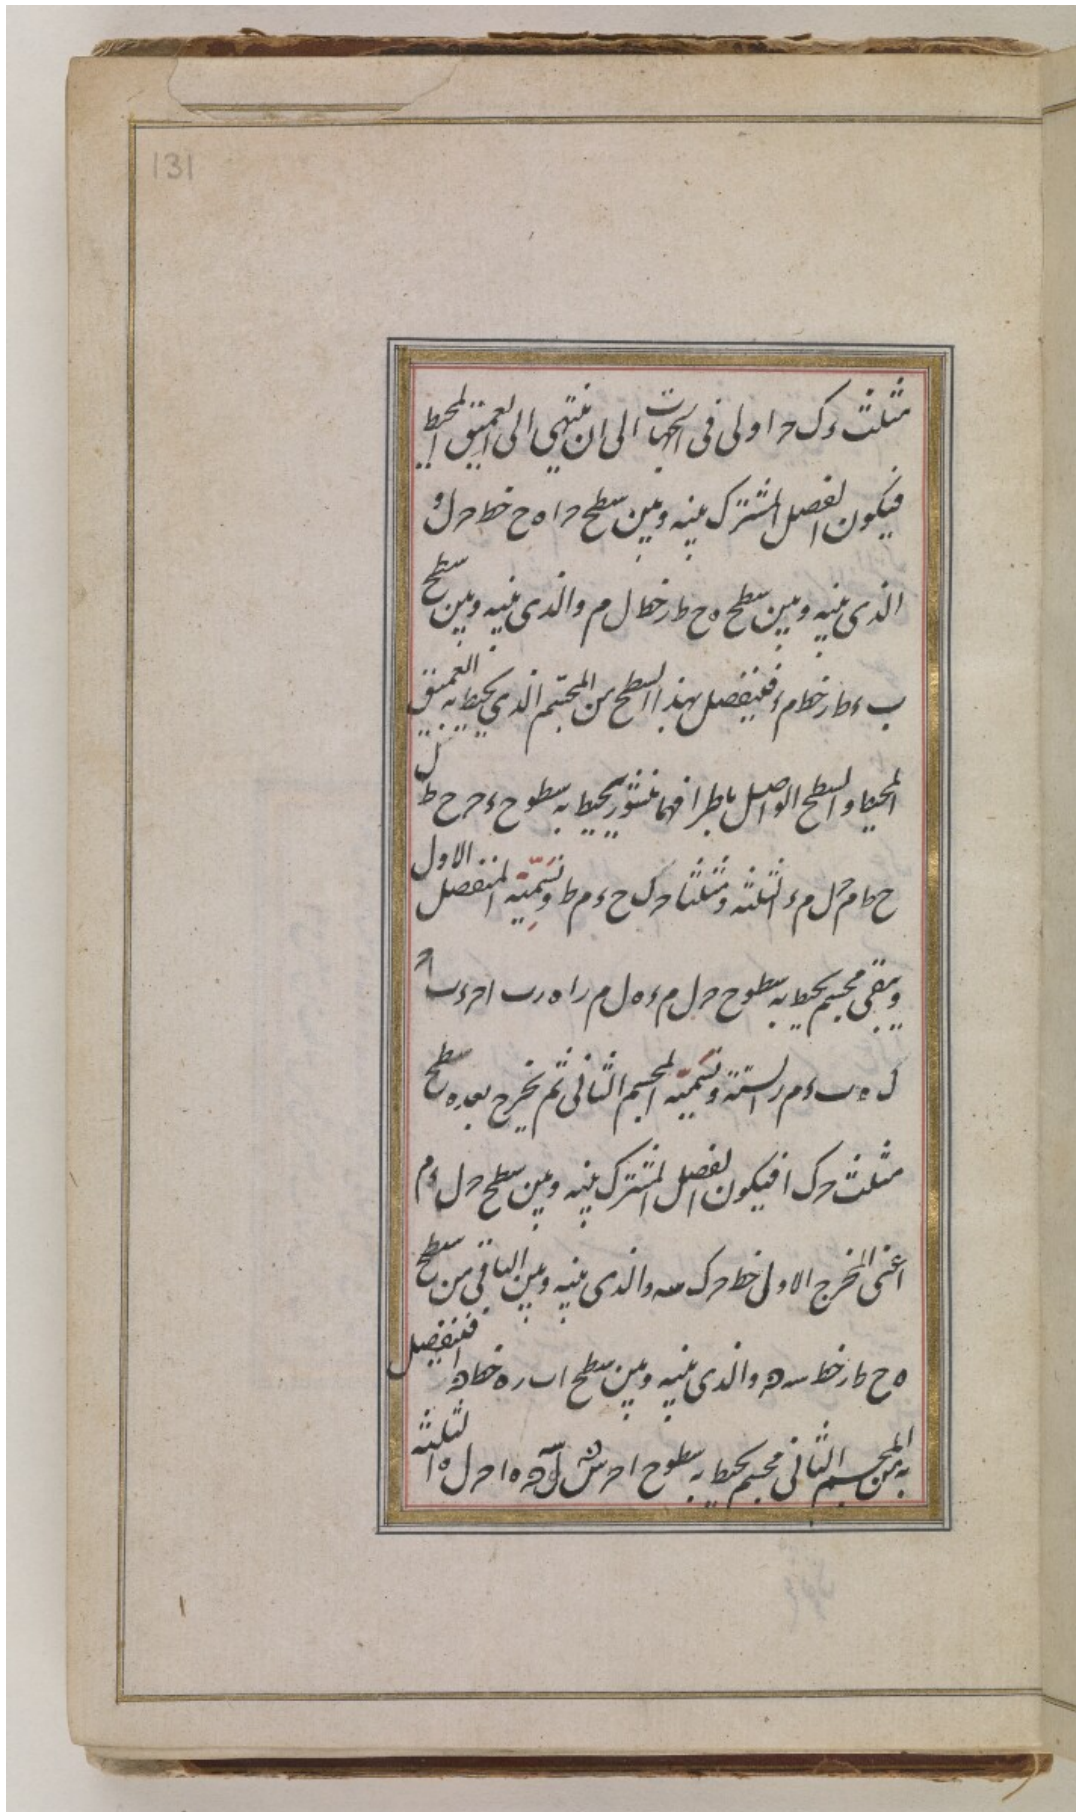 131
مثلث ءك حر اولى فى الجهات الى ان ينتهي الى العميق المحيط
فيكون الفصل المشترك بينه وبين سطح حر ا ه ح خط حر ل و
الذى بينه وبين سطح ه ح ط ر خط ل م والذى بينه وبين سطح
ب ء ط ر خط م ء فلينفصل بهذا السطح من المجسّم الذي يحيط به العميق
المحيط والسطح الواصل باطرافهما منشور يحيط به سطوح ح ء حر ح ط ل
ح ط م حر ل م ء الثلثه ومثلثا حر ل ح ء م ط ونسَمّيّه المنفصل الاول
ويبقى مجسم يحيط به سطوح حر ل م ء ه ل م ر ا ه ر ب ا حر ء ب ا حر
ل ه ب ء م ر الستّة ونسَميّه المجسم الثانى ثم نخرج بعده سطح
مثلث حر ك ا فيكون الفصل المشترك بينه وبين سطح حر ل ء م
اعنى المخرج الاول خط حر ك سه والذى بينه وبين الباقى من سطح
ه ح ط ر خط سه والذى بينه وبين سطح ا ب ر ه خط فلينفصل
به من المجسم الثانى مجسم يحيط به سطوح ا حر ه ا حر ل ه الثلثه